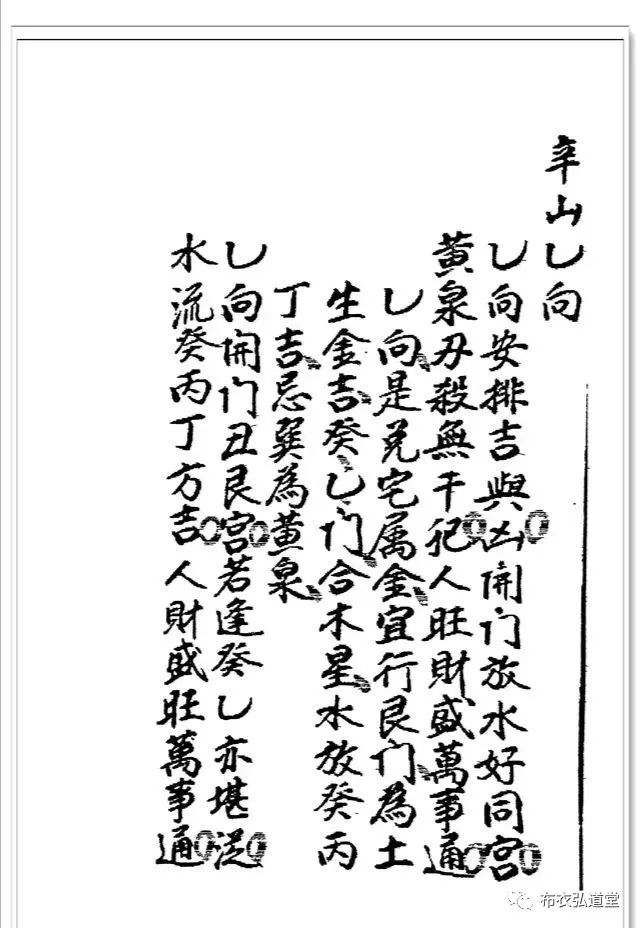 辛山乚向
乚向安排吉與凶開门放水好同宮
黃泉刃殺無干犯人旺財盛萬事通
乚向是兑宅属金宜行艮门為土
生金吉癸乚门合木星水放癸丙
丁吉忌巽為黃泉
乚向開门丑艮宮若逢癸乚亦堪从
水流癸丙丁方吉人財盛旺萬事通
布衣弘道堂